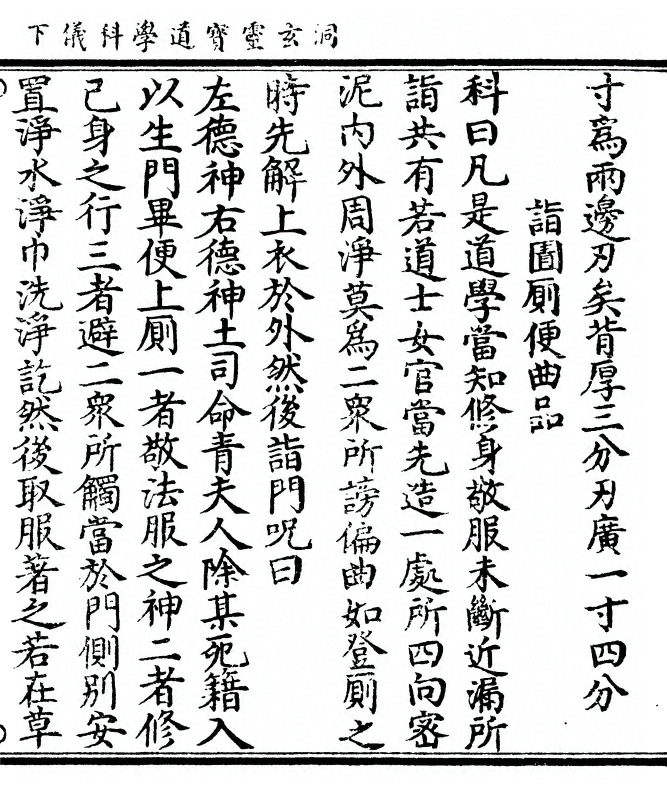 洞玄靈寶道學科儀下
寸爲兩邊刃矣背厚三分刃廣一寸四分
詣圊厠便曲品
科曰凡是道學當知修身敬服未斷近漏所
詣共有若道士女官當先造一處所四向密
泥内外周淨莫爲二衆所謗偏曲如登厠之
時先解上衣於外然後詣門呪曰
左德神右德神土司命青夫人除某死籍入
以生門畢便上厠一者敬法服之神二者修
己身之行三者避二衆所觸當於門側别安
置淨水淨巾洗淨訖然後取服著之若在草